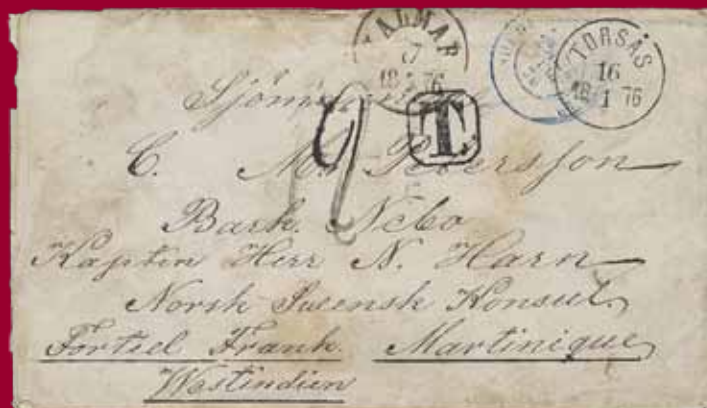 KALMAR
17
18 1 76
TORSÅS
16
18 1 76
T.
Sjöman
C. M. Petersson
Bark. Nebo
Kaptin Herr N. Harn
Norsk Svensk Konsul.
Fortiel Frank. Martinique
Westindien